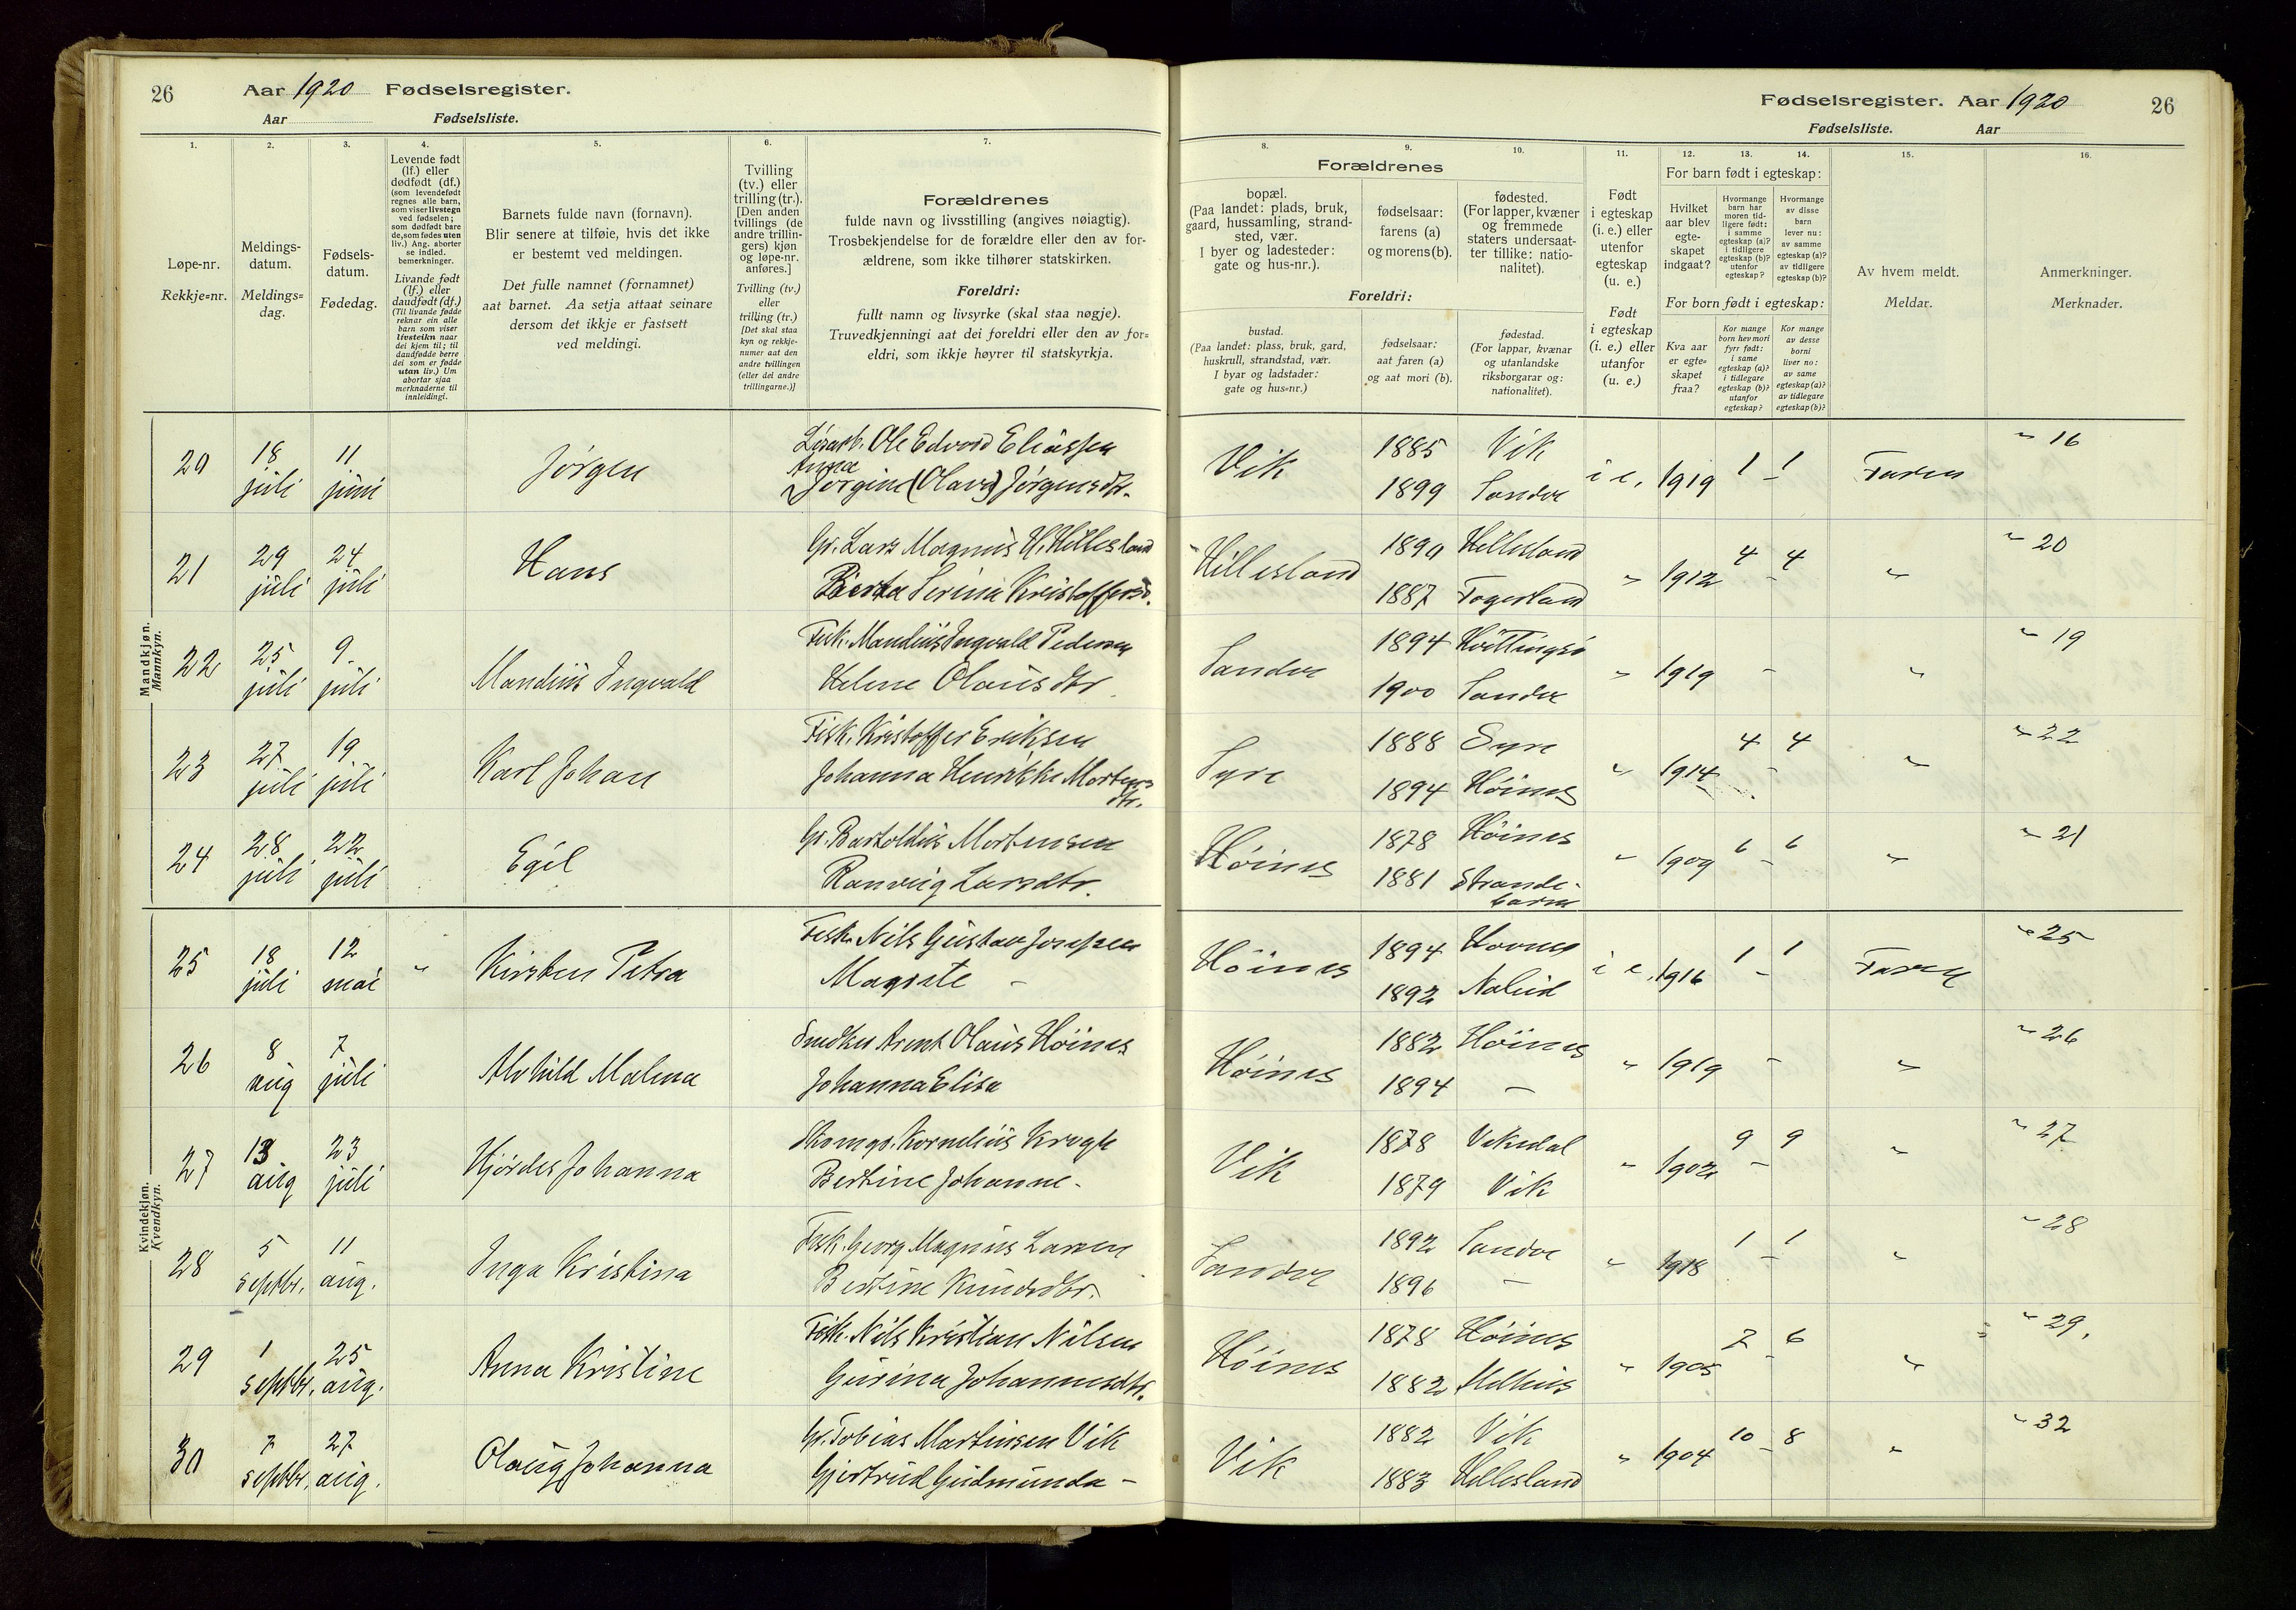 26 Aar 1920 Fødselsregister.
Aar Fødselsliste.
Fødselsregister. Aar 1920 26
Fødselsliste. Aar
1. 2. 3. 4. 5. 6. 7.
8. 9. 10. 11. 12. 13. 14. 15. 16.
Løpe-nr.
Rekkje=nr.
Meldings-
datum.
Meldings=
dag.
Fødsels-
datum.
Fødedag.
Levende født
(lf.) eller
dødfødt (df.)
(som levendefødt
regnes alle barn,
som viser livstegn
ved fødselen;
som dødfødt bare
de, som fødes uten
liv.) Ang. aborter
se indled.
bemerkninger.
Livande født
(lf.) eller
daudfødt (df.)
(Til livande fødde
reknar ein alle
barn som viser
livsteikn naar
dei kjem til; til
daudfødde berre
dei som er fødde
utan liv.) Um
abortar sjaa
merknaderne til
innleidingi.
Barnets fulde navn (fornavn).
Blir senere at tilføie, hvis det ikke
er bestemt ved meldingen.
Det fulle namnet (fornamnet)
aat barnet. Aa setja attaat seinare
dersom det ikkje er fastsett
ved meldingi.
Tvilling
(tv.) eller
trilling (tr.).
[Den anden
tvillings (de
andre trillin-
gers) kjøn
og løpe-nr.
anføres.]
Tvilling (tv.)
eller
trilling (tr.)
[Det skal staa
kyn og rekkje-
numer aat den
andre tvillingen
(eller dei andre
trillingarne.)]
Forældrenes
fulde navn og livsstilling (angives nøiagtig).
Trosbekjendelse for de forældre eller den av for-
ældrene, som ikke tilhører statskirken.
Foreldri:
fullt namn og livsyrke (skal staa nøgje).
Truvedkjenningi aat dei foreldri eller den av for=
eldri, som ikkje høyrer til statskyrkja.
Forældrenes
bopæl.
(Paa landet: plads, bruk,
gaard, hussamling, strand-
sted, vær.
I byer og ladesteder:
gate og hus-nr.).
fødselsaar:
farens (a)
og morens (b).
fødested.
(For lapper, kvæner
og fremmede
staters undersaat-
ter tillike: natio-
nalitet).
Foreldri:
bustad.
(Paa landet: plass, bruk, gard,
huskrull, strandstad, vær.
I byar og ladstader:
gate og hus=nr.)
fødselsaar:
aat faren (a)
og aat mori (b).
fødestad.
(For lappar, kvænar
og utanlandske
riksborgarar og:
nationalitet).
Født
i egteskap
(i. e.) eller
utenfor
egteskap
(u. e.)
Født
i egteskap
(i. e.) eller
utanfor
(u. e.)
For barn født i egteskap:
Hvilket
aar blev
egte-
skapet
indgaat?
Hvormange
barn har
moren tid-
ligere født:
i samme
egteskap (a)?
i tidligere
egteskap (b)?
utenfor
egteskap?
Hvormange
av disse
barn
lever nu:
av samme
egteskap (a)?
av tidligere
egteskap (b)?
For born født i egteskap:
Kva aar
er egte=
skapet
fraa?
Kor mange
born hev mori
fyrr født:
i same
egteskap (a)?
i tidlegare
egteskap (b)?
utanfor
egteskap?
Kor mange
av desse
borni
liver no:
av same
egteskap (a)?
av tidlegare
egteskap (b)?
Av hvem meldt.
Meldar.
Anmerkninger.
Merknader.
Mandkjøn.
Mannkyn.
20 18 juli 11 juni Jørgen Ole Edvard Eliassen Anna Jørgine (Olava) Jørgensdtr. Vik 1885 1899 Vik Sandve i e. 1919 1 - 1 Faren " 16
21 29 juli 24 juli Hans Gr. Lars Magnus H. Hillesland Berta Serina Kristoffersd. Hillesland 1890 1887 Hillesland Fageland " 1912 4 - 4 " " 20
22 25 juli 9 juli Mandius Ingvald Fisk. Mandius Ingvald Pedersen Helene Olausdtr. Sandve 1894 1900 Sandve " 1919 - " " 19
23 27 juli 19 juli Karl Johan Fisk. Kristoffer Eriksen Johanna Henrikke Mortens dtr. Syre 1888 1894 Syre Høines " 1914 4 - 4 " " 22
24 28 juli 22 juli Egil Gr. Bartoldius Mortensen Ranveig Larsdtr. Høines 1878 1881 Høines Strande- barm " 1909 6 - 6 " " 21
Kvindekjøn.
Kvendkyn.
25 18 juli 12 mai " Kirsten Petra Fisk. Nils Gustav Josefsen Magrete - Høines 1894 1892 i e. 1916 1 - 1 Faren " 25
26 8 aug 7 juli Alvhild Malena Snedker Arent Olaus Høines Johanna Elisa Høines 1882 1894 Høines - " 1919 - " " 26
27 13 aug 23 juli Hjørdes Johanna Skomgr. Kornelius Krogh Bertine Johanne - Vik 1878 1879 Vikedal Vik " 1902 9 - 9 " " 27
28 5 septbr. 11 aug. Inga Kristina Fisk. Georg Magnus Larsen Bertine Knudsdtr. Sandve 1892 1896 Sandve - " 1918 1 - 1 " " 28
29 1 septbr. 25 aug. Anna Kristine Fisk. Nils Kristian Nilsen Gurina Johannesdtr. Høines 1878 1882 Høines Melhus " 1905 7 - 6 " " 29.
30 7 septbr. 27 aug. Olaug Johanna Gr. Tobias Martinsen Vik Gjertrud Gudmunda - Vik 1882 1883 Vik Hillesland " 1904 10 - 8 " " 32